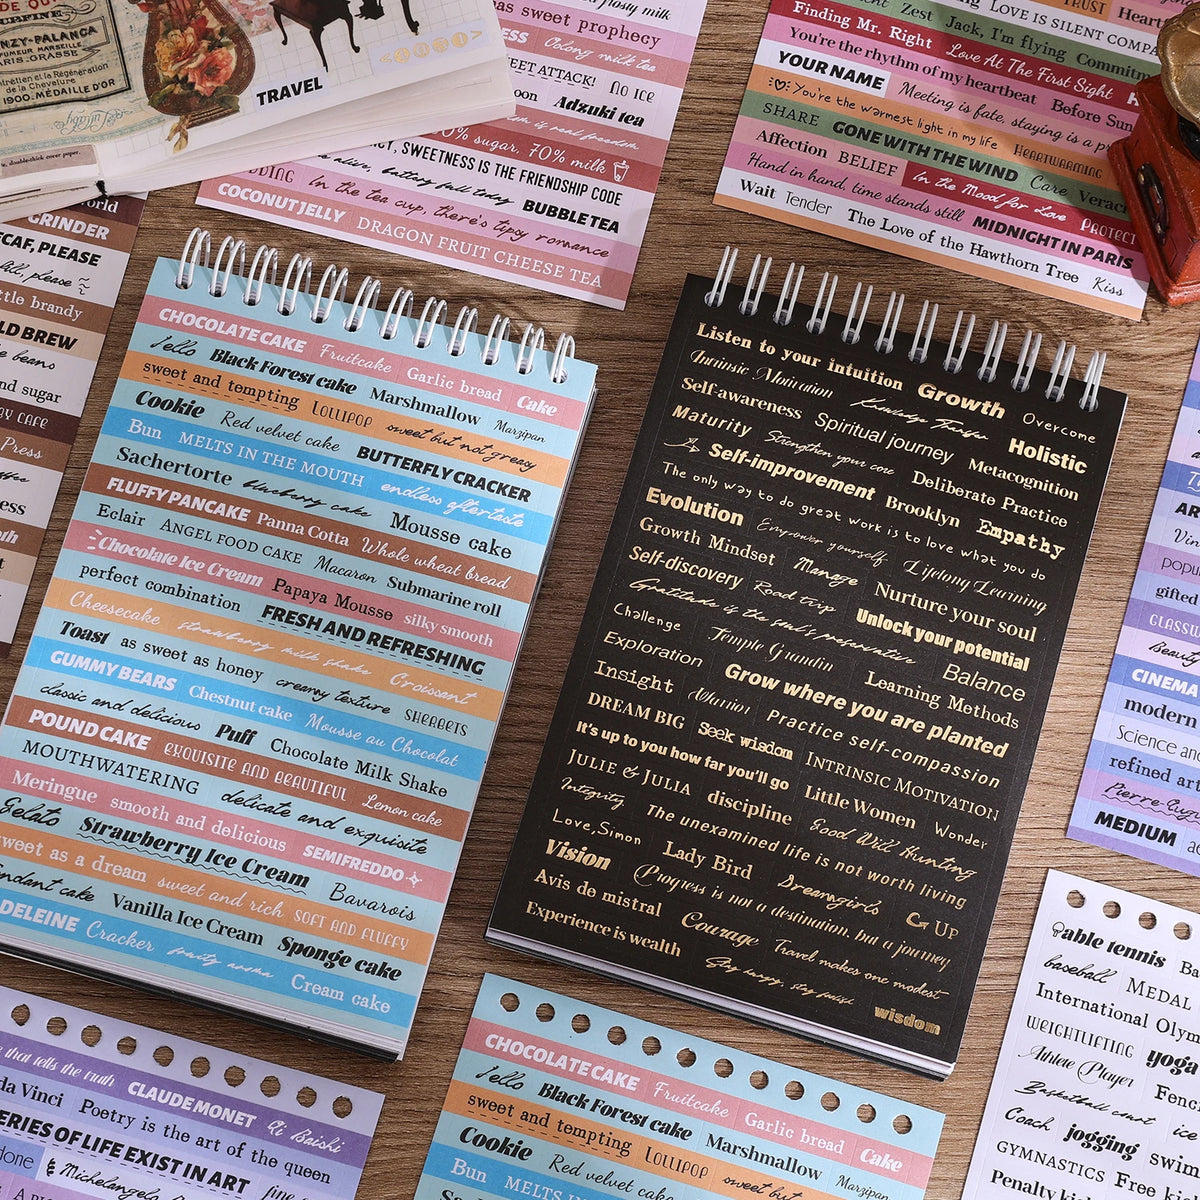 PARIS.GRASSE.
1900. MÉDAILLE D'OR
TRAVEL
as sweet prophecy
Oolong milk tea
SWEET ATTACK! NO ICE
Adzuki tea
sugar, 70% milk
SWEETNESS IS THE FRIENDSHIP CODE
BUBBLE TEA
In the tea cup, there's tipsy romance
COCONUT JELLY DRAGON FRUIT CHEESE TEA
Zest Jack, I'm flying
LOVE IS SILENT
TRUST
Finding Mr. Right Love At The First Sight
You're the rhythm of my heartbeat Before
YOUR NAME Meeting is fate, staying is a
You're the warmest light in my life HEARTWARMING
SHARE GONE WITH THE WIND Care
Affection BELIEF In the Mood for Love PROTECT
Hand in hand, time stands still MIDNIGHT IN PARIS
Wait Tender The Love of the Hawthorn Tree Kiss
GRINDER
DECAF, PLEASE
little brandy
COLD BREW
beans
and sugar
Press
CHOCOLATE CAKE Fruitcake Garlic bread Cake
Jello Black Forest cake Marshmallow Marzipan
sweet and tempting LOLLIPOP sweet but not greasy
Cookie Red velvet cake BUTTERFLY CRACKER
Bun MELTS IN THE MOUTH endless aftertaste
Sachertorte blueberry cake Mousse cake
FLUFFY PANCAKE Panna Cotta Whole wheat bread
Eclair ANGEL FOOD CAKE Macaron Submarine roll
Chocolate Ice Cream Papaya Mousse silky smooth
perfect combination FRESH AND REFRESHING
Cheesecake strawberry milk shake Croissant
Toast as sweet as honey creamy texture SHERBETS
GUMMY BEARS Chestnut cake Mousse au Chocolat
classic and delicious Puff Chocolate Milk Shake
POUND CAKE EXQUISITE AND BEAUTIFUL Lemon cake
MOUTHWATERING delicate and exquisite
Meringue smooth and delicious SEMIFREDDO
Gelato Strawberry Ice Cream Bavarois
sweet as a dream sweet and rich SOFT AND FLUFFY
Vanilla Ice Cream Sponge cake
Cracker fruity aroma Cream cake
Listen to your intuition Growth Overcome
Intrinsic Motivation Knowledge Transfer Holistic
Self-awareness Spiritual journey Metacognition
Maturity Strengthen your core Deliberate Practice
Self-improvement Brooklyn Empathy
The only way to do great work is to love what you do
Evolution Empower yourself Lifelong Learning
Growth Mindset Manage Nurture your soul
Self-discovery Road trip Unlock your potential
Gratitude is the soul's preservative Balance
Challenge Temple Grandin Learning Methods
Exploration Grow where you are planted
Insight Warrior Practice self-compassion
DREAM BIG Seek wisdom INTRINSIC MOTIVATION
It's up to you how far you'll go Little Women Wonder
JULIE & JULIA discipline Good Will Hunting
Integrity The unexamined life is not worth living
Love, Simon Lady Bird Dreamgirls G UP
Vision Progress is not a destination, but a journey
Avis de mistral Courage Travel makes one modest
Experience is wealth Stay hungry, stay foolish wisdom
CINEMA
modern
Science and
refined art
MEDIUM
that tells the truth CLAUDE MONET Qi Baishi
Vinci Poetry is the art of the queen
OF LIFE EXIST IN ART
Michelangelo
CHOCOLATE CAKE Fruitcake Garlic bread Cake
Jello Black Forest cake Marshmallow Marzipan
sweet and tempting LOLLIPOP sweet but
Cookie Red velvet cake
Bun MELTS
table tennis
baseball MEDAL
International
WEIGHTLIFTING yoga
Athlete Player
Basketball court ice
Coach jogging
GYMNASTICS Free
Penalty